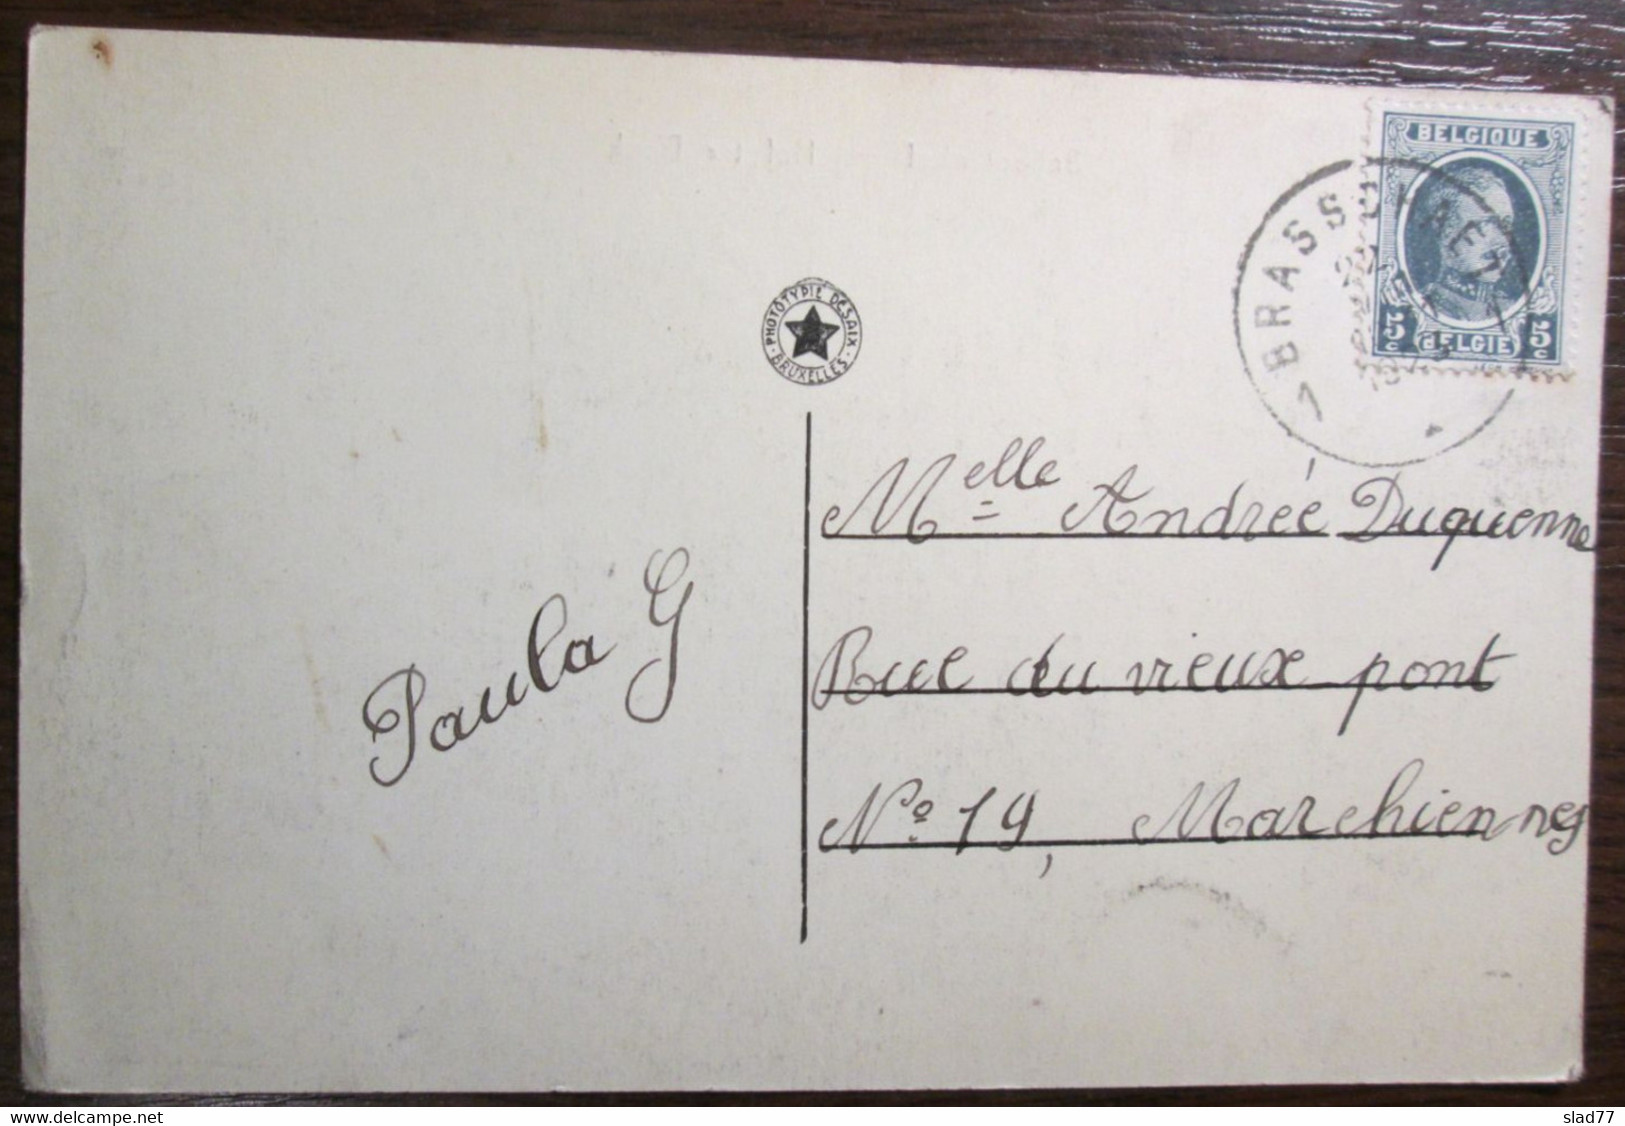 BELGIQUE
BRASSCHAET
5c 5c
BELGIE
PHOTOTYPIE DESAIX
BRUXELLES
Melle Andrée Duquenne
Rue du vieux pont
Paula G
No 19, Marchiennes
www.delcampe.net
slad77